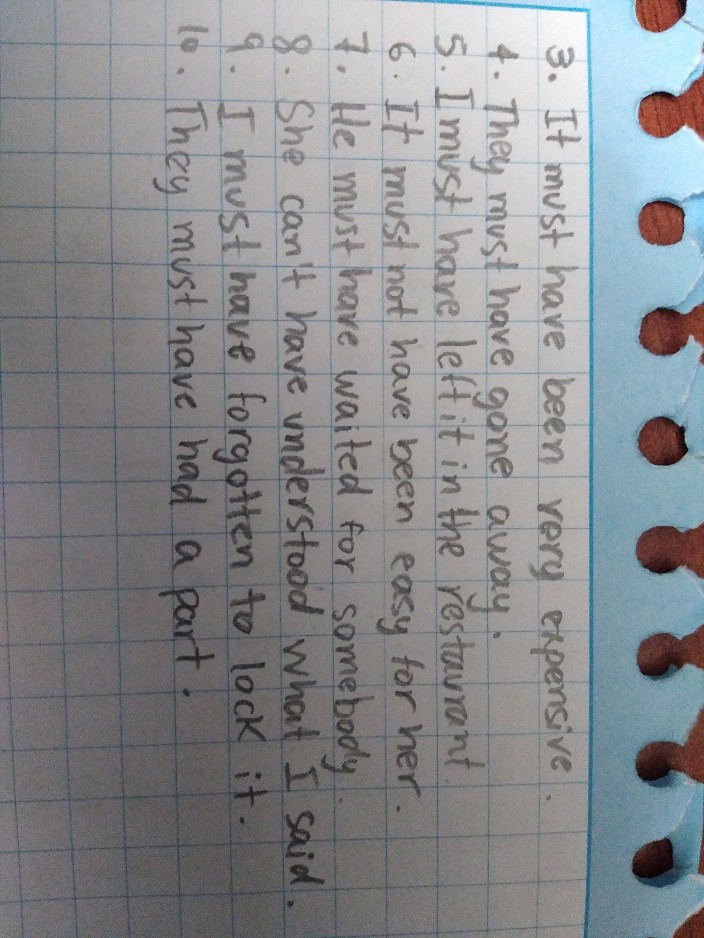 3. It must have been very expensive.
4. They must have gone away.
5. I must have left it in the restaurant.
6. It must not have been easy for her.
7. He must have waited for somebody.
8. She can't have understood what I said.
9. I must have forgotten to lock it.
10. They must have had a part.